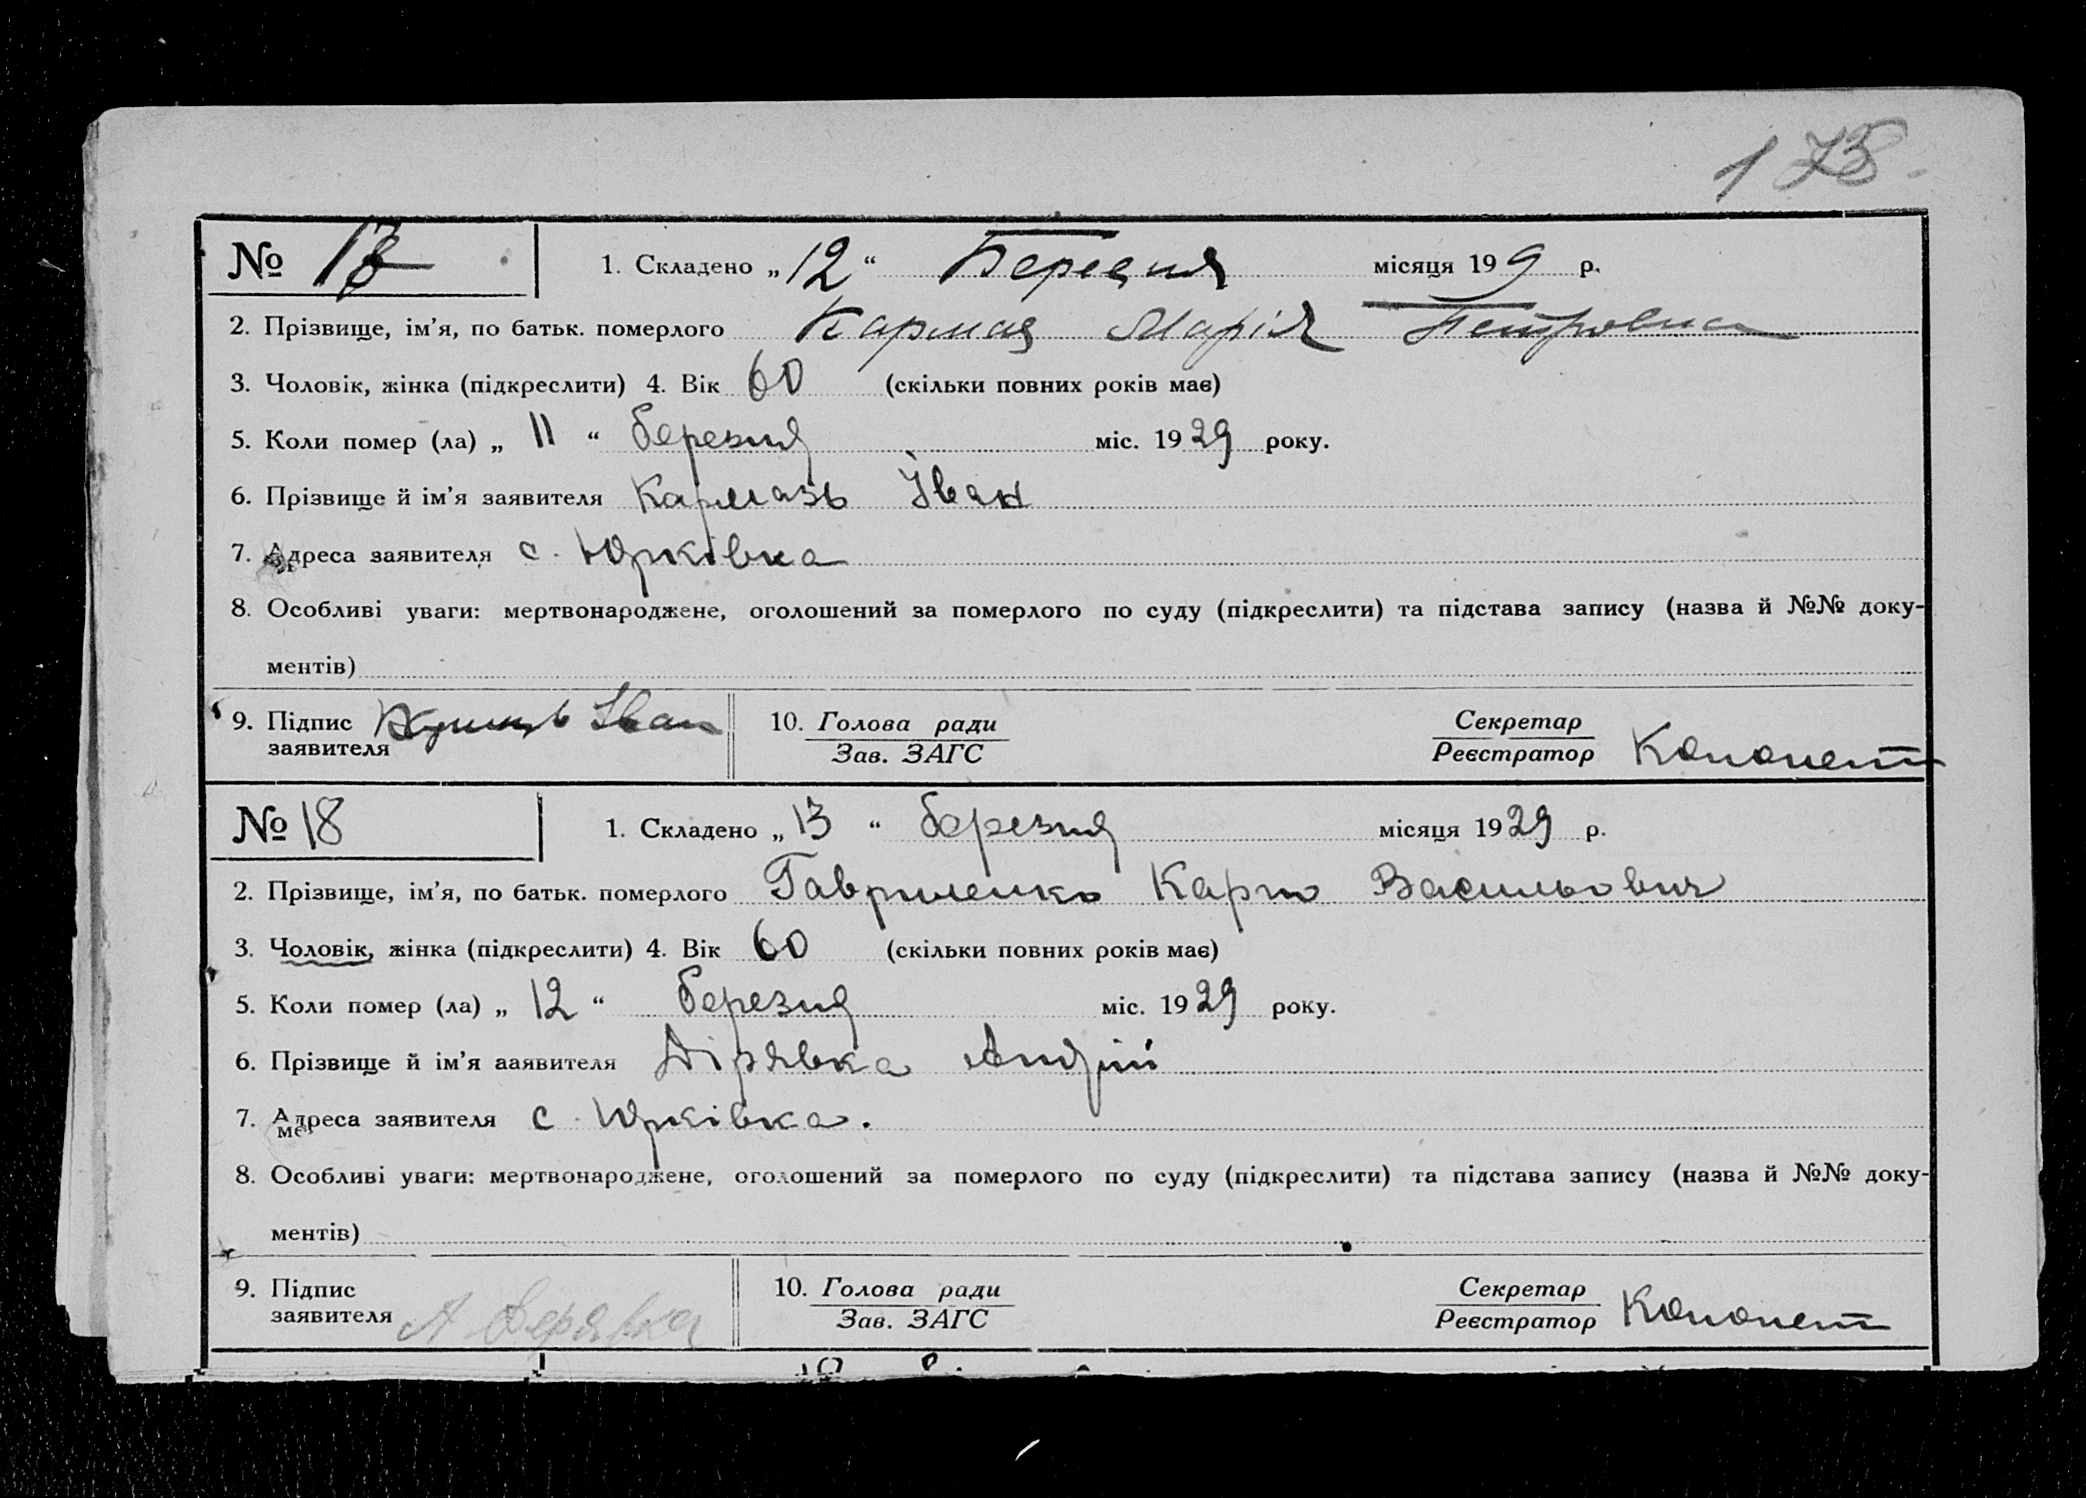 175.
№ 17
1. Складено „ 12 “ Березня місяця 19 9 р.
2. Прізвище, ім'я, по батьк. померлого Кармаз Марія Петровна
3. Чоловік, жінка (підкреслити) 4. Вік 60 (скільки повних років має)
5. Коли помер (ла) „ 11 “ березня міс. 19 29 року.
6. Прізвище й ім'я заявителя Кармазь Іван
7. Адреса заявителя с. Юрківка
8. Особливі уваги: мертвонароджене, оголошений за померлого по суду (підкреслити) та підстава запису (назва й №№ доку-
ментів)
9. Підпис заявителя Іван
10. Голова ради
Зав. ЗАГС
Секретар
Реєстратор Кононент
№ 18
1. Складено „ 13 “ березня місяця 19 29 р.
2. Прізвище, ім'я, по батьк. померлого Гавриленко Карпо Васильович
3. Чоловік, жінка (підкреслити) 4. Вік 60 (скільки повних років має)
5. Коли помер (ла) „ 12 “ березня міс. 19 29 року.
6. Прізвище й ім'я ааявителя Дірявка Андрій
7. Адреса заявителя с. Юрківка.
8. Особливі уваги: мертвонароджене, оголошений за померлого по суду (підкреслити) та підстава запису (назва й №№ доку-
ментів)
9. Підпис заявителя А Дерявка
10. Голова ради
Зав. ЗАГС
Секретар
Реєстратор Кононент